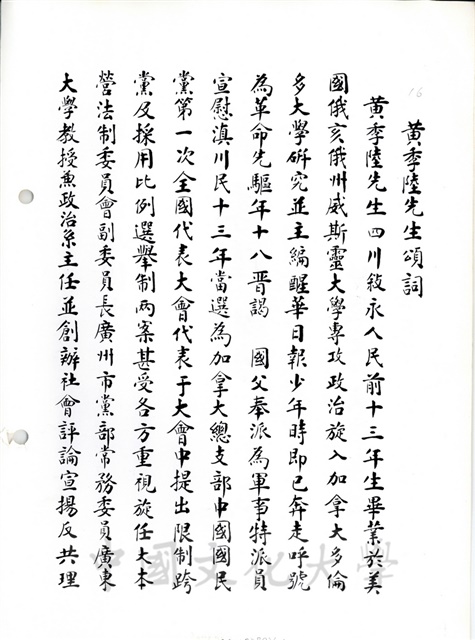 16
黃季陸先生頌詞
黃季陸先生四川敍永人民前十三年生畢業於美
國俄亥俄州威斯靈大學專攻政治旋入加拿大多倫
多大學硏究並主編醒華日報少年時即已奔走呼號
為革命先驅年十八晋謁　國父奉派為軍事特派員
宣慰滇川民十三年當選為加拿大總支部中國國民
黨第一次全國代表大會代表于大會中提出限制跨
黨及採用比例選舉制兩案甚受各方重視旋任大本
營法制委員會副委員長廣州市黨部常務委員廣東
大學教授兼政治系主任並創辦社會評論宣揚反共理
中國文化大學